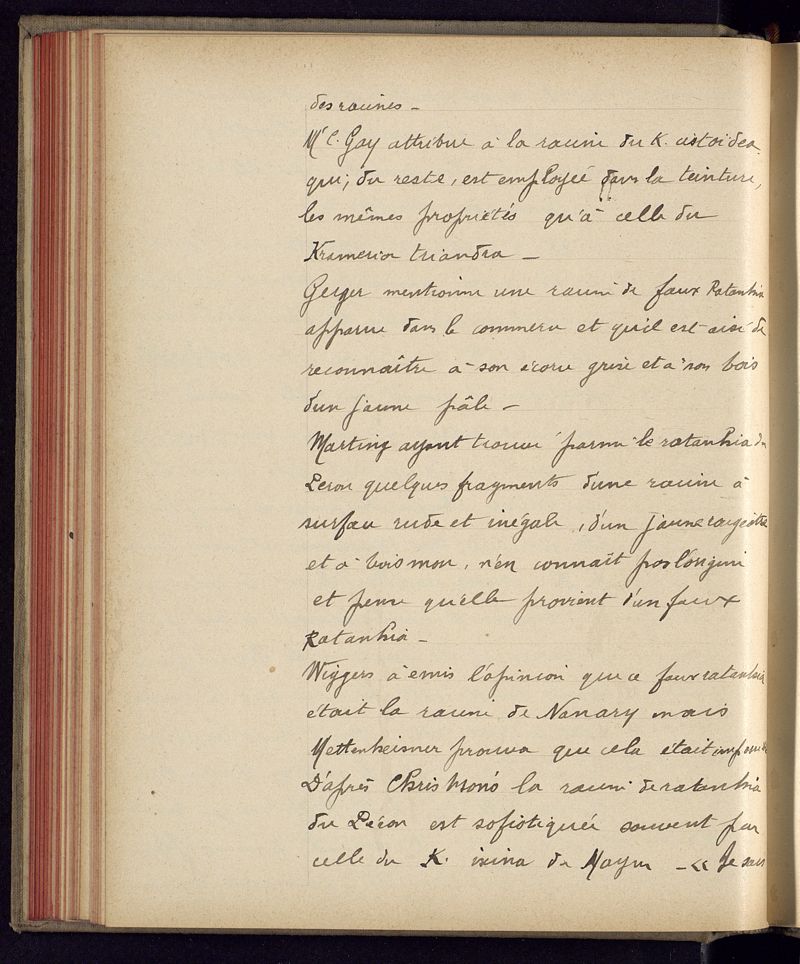 des racines –
Mr C. Gay attribue à la racine du K. cistoidea
qui, du reste, est employée dans la teinture,
les mêmes propriétés qu'à celle du
Krameria triandra –
Geiger mentionne une racine de faux Ratanhia
apparue dans le commerce et qu'il est aisé de
reconnaître à son écorce grise et à son bois
d'un jaune pâle –
Martiny ayant trouvé parmi le ratanhia du
Pérou quelques fragments d'une racine à
surface rude et inégale, d'un jaune rougeâtre
et à bois mou, n'en connaît pas l'origine
et pense qu'elle provient d'un faux
Ratanhia –
Wiggers à émis l'opinion que ce faux ratanhia
était la racine de Nanary mais
Mettenheimer prouva que cela était
D'après la racine de ratanhia
du Pérou est sofistiquée souvent par
celle du K. ixina de – « Je sais